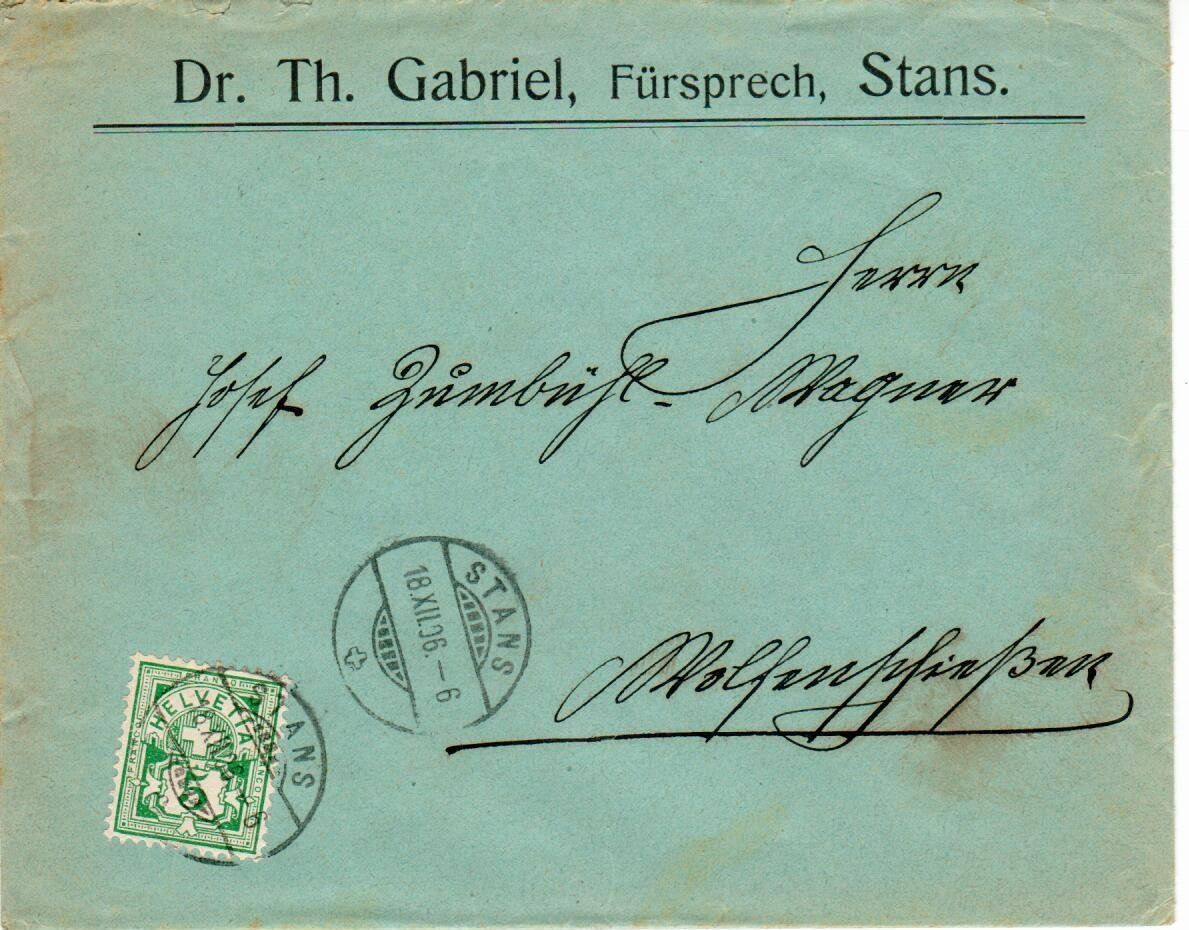 Dr. Th. Gabriel, Fürsprech, Stans.
Herrn
Josef Zumbühl-Wagner
STANS
18.XII.06.–6
Wolfenschießen
FRANCO
HELVETIA
FRANCO
5
STANS